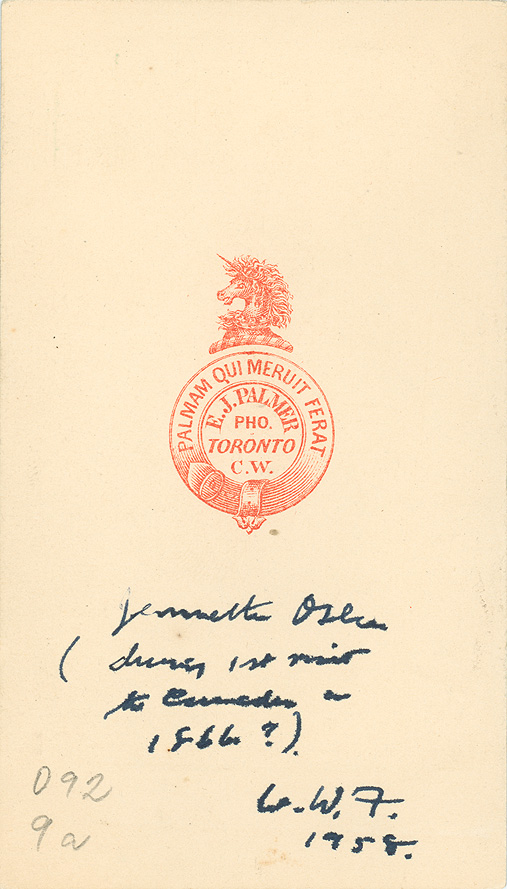 PALMAM QUI MERUIT FERAT
E.J. PALMER
PHO.
TORONTO
C.W.
Jennette Osler
( during 1st visit
to Canada in
1866 ?).
W.F.
1958.
092
9a